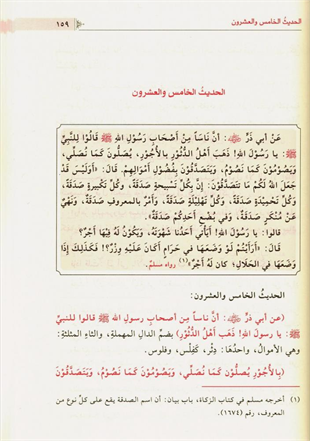 الحديث الخامس والعشرون ١٥٩
الحديثُ الخامس والعشرون
عَنْ أَبي ذَرٍّ ﷺ: أنَّ نَاساً مِنْ أَصْحَابِ رَسُولِ اللهِ ﷺ قَالُوا لِلنَّبِيِّ
ﷺ: يا رَسُولَ اللهِ! ذَهَبَ أَهْلُ الدُّثُورِ بِالأُجُورِ، يُصَلُّونَ كَمَا نُصَلِّي،
وَيَصُومُونَ كَمَا نَصُومُ، وَيَتَصَدَّقُونَ بِفُضُولِ أَمْوَالِهِمْ. قَالَ: «أَوَلَيْسَ قَدْ
جَعَلَ اللهُ لَكُمْ مَا تَصَدَّقُونَ: إِنَّ بِكُلِّ تَسْبِيحَةٍ صَدَقَةً، وَكُلِّ تَكْبِيرَةٍ صَدَقَةً،
وَكُلِّ تَحْمِيدَةٍ صَدَقَةً، وَكُلِّ تَهْلِيلَةٍ صَدَقَةً، وَأَمْرٌ بِالمَعروفِ صَدَقَةٌ، وَنَهْيٌ
عَنْ مُنْكَرٍ صَدَقَةٌ، وَفي بُضْعِ أَحَدِكُمْ صَدَقَةٌ».
قالوا: يا رسُولَ اللهِ! أَيَأْتي أَحَدُنا شَهْوَتَهُ، وَيَكُونُ لَهُ فِيهَا أَجْرٌ؟
قَالَ: «أَرَأَيْتُمْ لَوْ وَضَعَهَا في حَرَامٍ أَكَانَ عَلَيْهِ وِزْرٌ؟! فَكَذَلِكَ إِذَا
وَضَعَهَا في الحَلَالِ؛ كانَ لَهُ أَجْرٌ»(١) رواه مسلم.
الحديث الخامس والعشرون:
(عن أبي ذرٍّ: أنَّ ناساً مِن أصحابِ رسولِ الله ﷺ قالوا للنبيِّ
ﷺ: يا رسول الله! ذَهَبَ أهْلُ الدُّثُورِ) بضمِّ الدالِ المهملةِ، والثاءِ المثلثةِ:
وهي الأموالُ، واحدُهَا: دثر، كفِلْس، وفلوس.
(بِالأُجُورِ يُصَلُّونَ كَمَا نُصَلِّي، وَيَصُوْمُوْنَ كَمَا نَصُوْمُ، وَيَتَصَدَّقُوْنَ
(١) أخرجه مسلم في كتاب الزكاة، باب بيان: أن اسم الصدقة يقع على كل نوع من
المعروف، رقم (١٦٧٤)